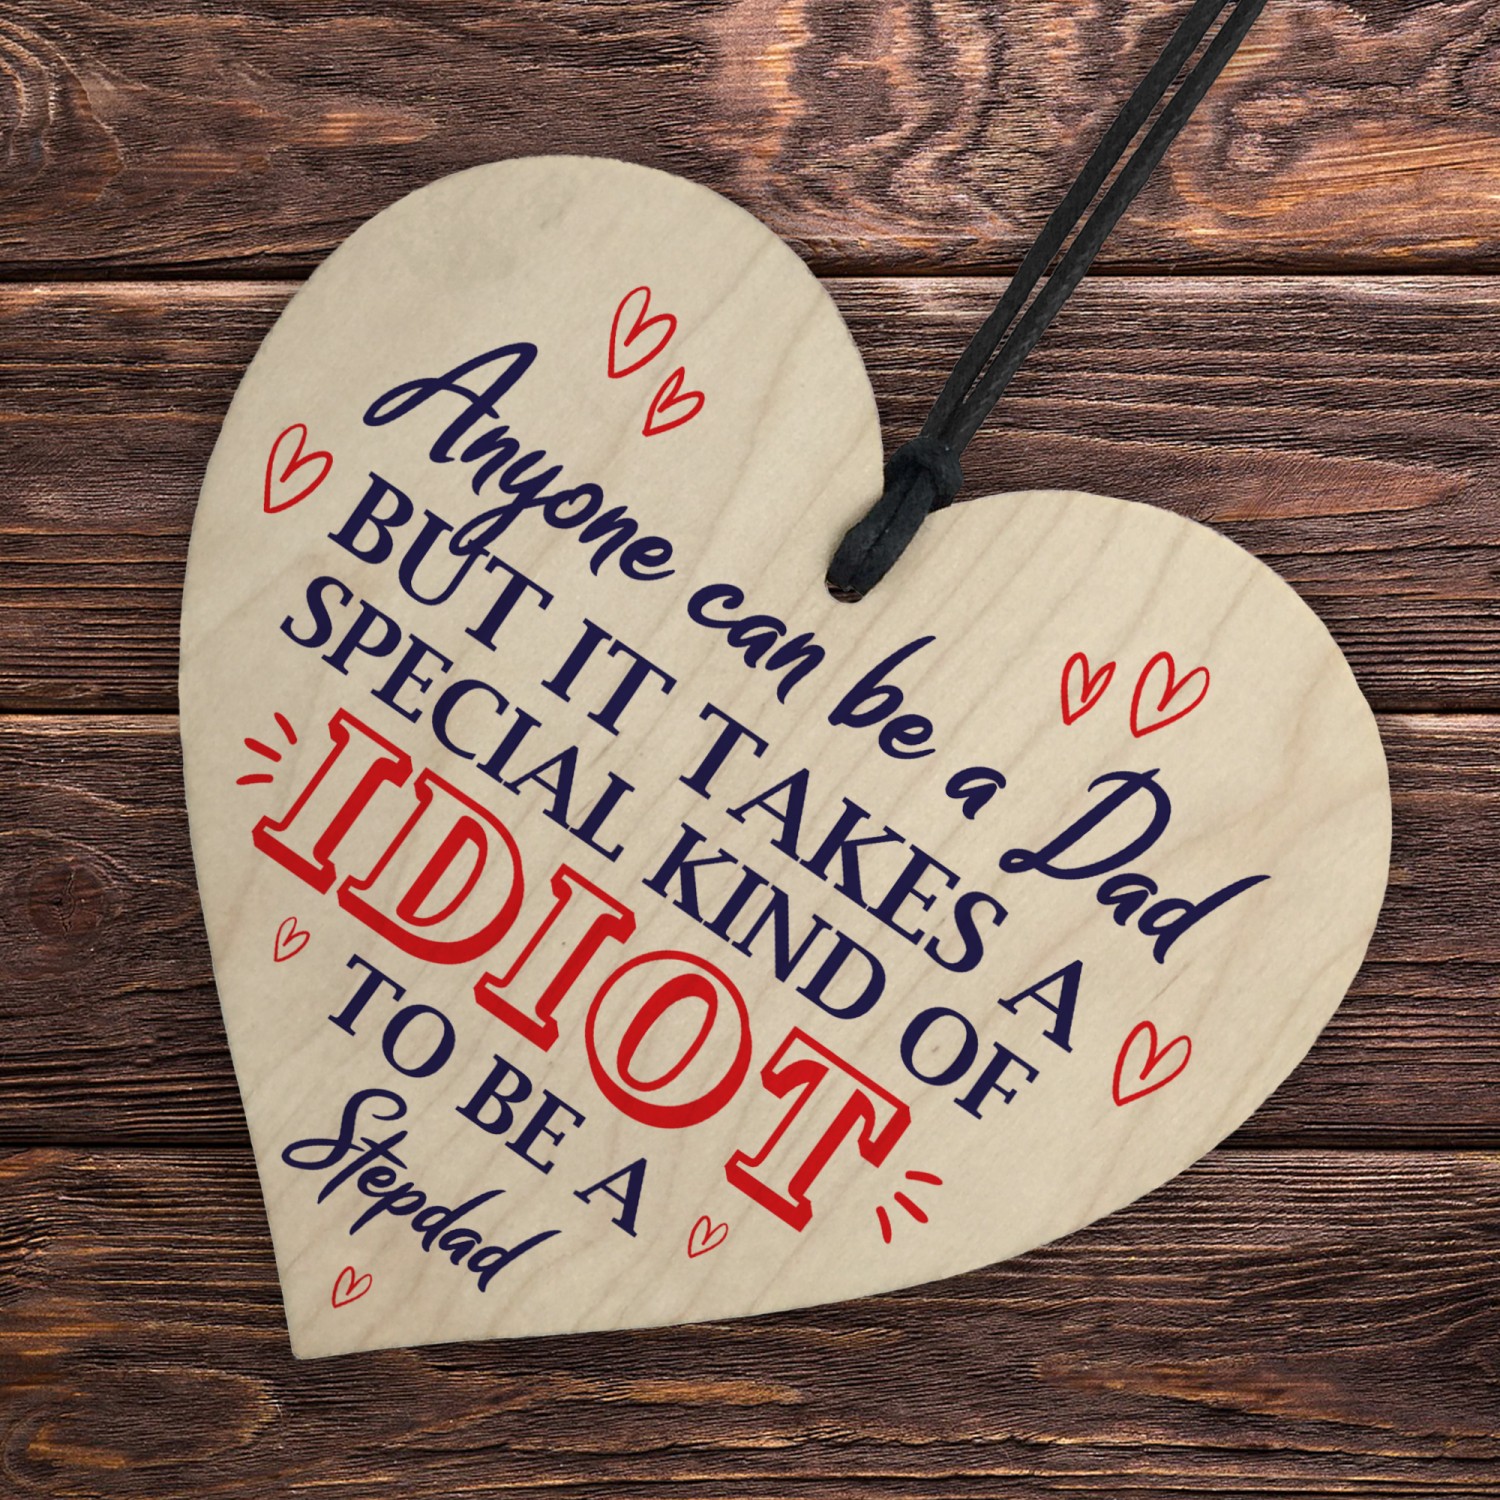 Anyone can be a Dad
BUT IT TAKES A
SPECIAL KIND OF
IDIOT
TO BE A
Stepdad